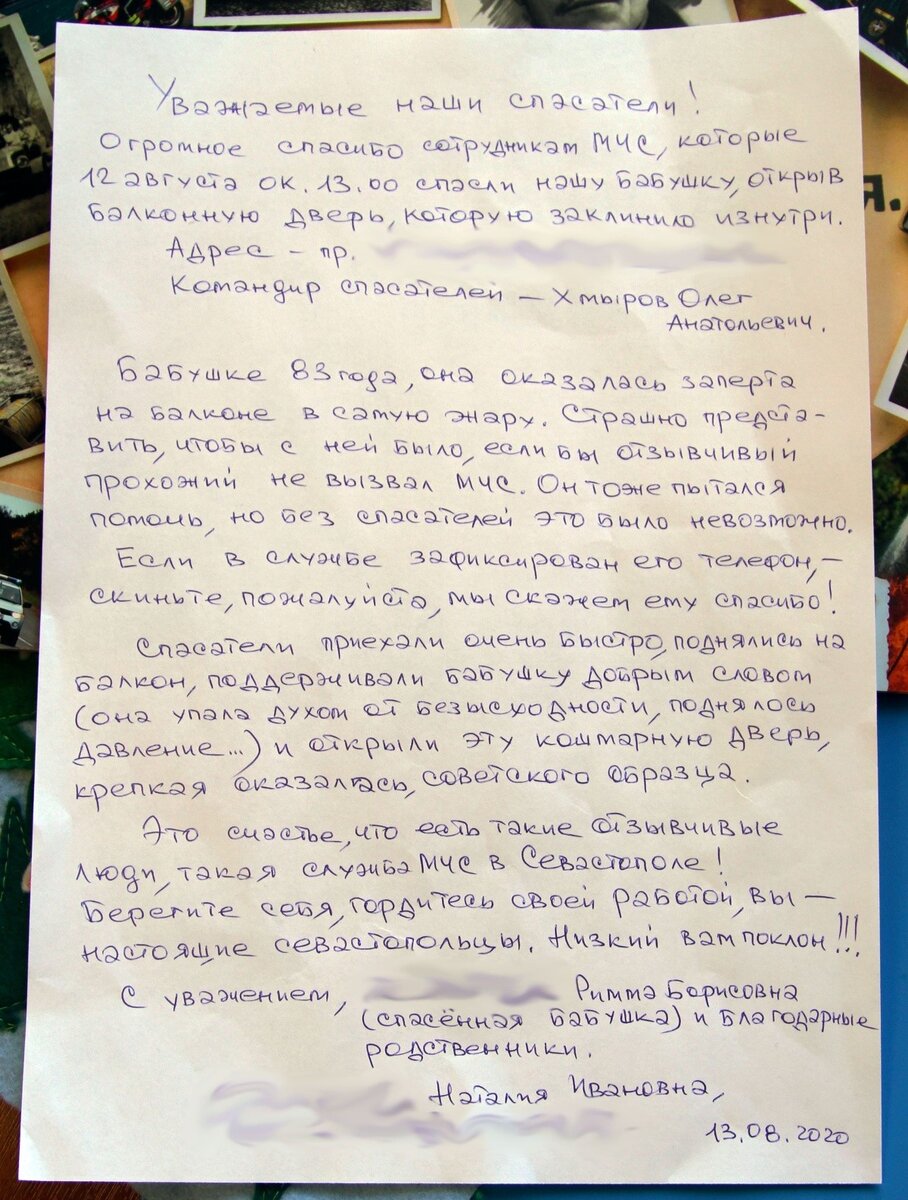 Уважаемые наши спасатели!
Огромное спасибо сотрудникам МЧС, которые
12 августа ок. 13.00 спасли нашу бабушку, открыв
балконную дверь, которую заклинило изнутри.
Адрес – пр.
Командир спасателей – Хмыров Олег
Анатольевич.
Бабушке 83 года, она оказалась заперта
на балконе в самую жару. Страшно предста-
вить, чтобы с ней было, если бы отзывчивый
прохожий не вызвал МЧС. Он тоже пытался
помочь, но без спасателей это было невозможно.
Если в службе зафиксирован его телефон, –
скиньте, пожалуйста, мы скажем ему спасибо!
Спасатели приехали очень быстро, поднялись на
балкон, поддерживали бабушку добрым словом
(она упала духом от безысходности, поднялось
давление...) и открыли эту кошмарную дверь,
крепкая оказалась, советского образца.
Это счастье, что есть такие отзывчивые
люди, такая служба МЧС в Севастополе!
Берегите себя, гордитесь своей работой, вы –
настоящие севастопольцы. Низкий вам поклон!!!
С уважением, Римма Борисовна
(спасённая бабушка) и благодарные
родственники.
Наталия Ивановна,
13.08.2020
я.